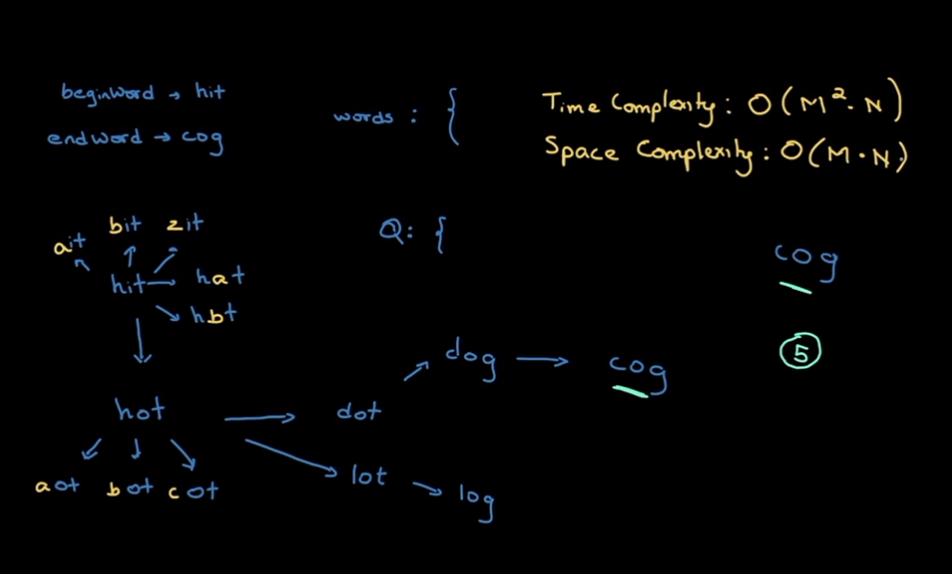 beginWord → hit
endword → cog
words : {
Time Complexity: O(M².N)
Space Complexity: O(M.N)
Q: {
cog
5
ait bit zit
hit → hat
hbt
hot → dot → dog → cog
lot → log
aot bot cot